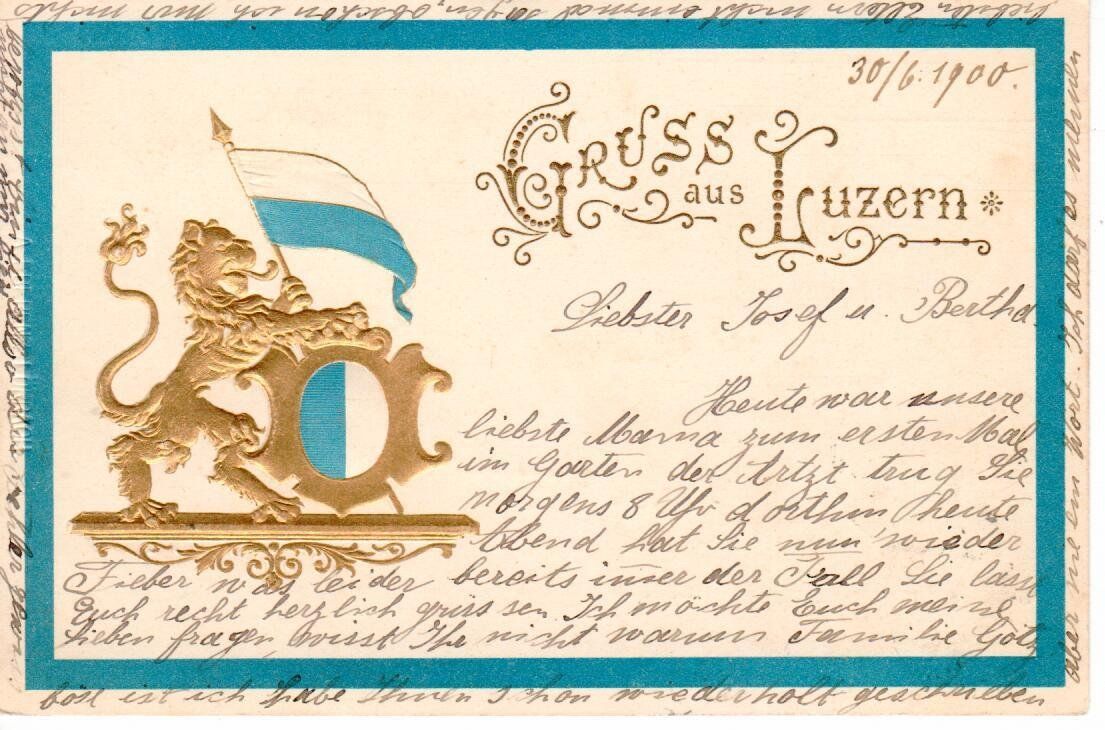 30/6. 1900.
Gruss
aus Luzern
Liebster Josef u. Bertha
Heute war unsere
liebste Mama zum ersten Mal
im Garten der Artzt trug Sie
morgens 8 Uhr dorthin heute
Abend hat Sie nun wieder
Fieber was leider bereits imer der Fall Sie lässt
Euch recht herzlich grüssen Ich möchte Euch meine
lieben fragen, wisst Ihr nicht warum Familie Götz
böse ist ich habe Ihnen Schon wiederholt geschrieben
aber nie ein Wort. Ich darf es meinen
liebsten Eltern nicht einmal sagen, obschon ich